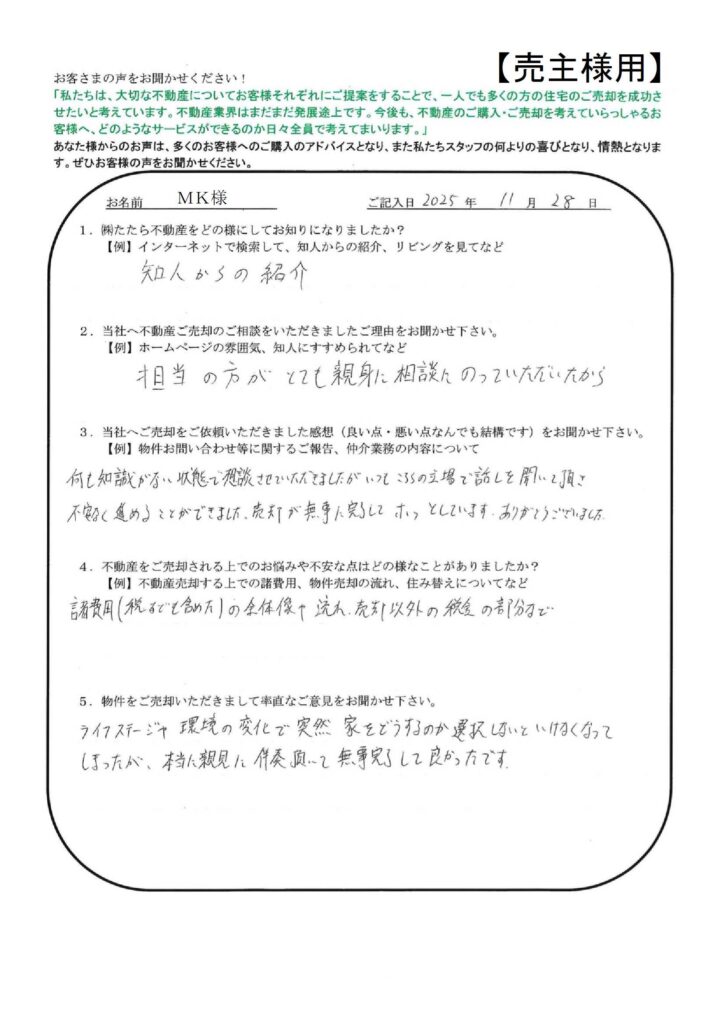 【売主様用】
お客さまの声をお聞かせください！
「私たちは、大切な不動産についてお客様それぞれにご提案をすることで、一人でも多くの方の住宅のご売却を成功さ
せたいと考えています。不動産業界はまだまだ発展途上です。今後も、不動産のご購入・ご売却を考えていらっしゃるお
客様へ、どのようなサービスができるのか日々全員で考えてまいります。」
あなた様からのお声は、多くのお客様へのご購入のアドバイスとなり、また私たちスタッフの何よりの喜びとなり、情熱となりま
す。ぜひお客様の声をお聞かせください。
お名前 MK様 ご記入日 2025 年 11 月 28 日
１．㈱たたら不動産をどの様にしてお知りになりましたか？
【例】インターネットで検索して、知人からの紹介、リビングを見てなど
知人からの紹介
２．当社へ不動産ご売却のご相談をいただきましたご理由をお聞かせ下さい。
【例】ホームページの雰囲気、知人にすすめられてなど
担当の方がとても親身に相談にのっていただいたから
３．当社へご売却をご依頼いただきました感想（良い点・悪い点なんでも結構です）をお聞かせ下さい。
【例】物件お問い合わせ等に関するご報告、仲介業務の内容について
何も知識がない状態で相談させていただきましたがいつもこちらの立場で話しを聞いて頂き
不安なく進めることができました。売却が無事に完了してホッとしています。ありがとうございました。
４．不動産をご売却される上でのお悩みや不安な点はどの様なことがありましたか？
【例】不動産売却する上での諸費用、物件売却の流れ、住み替えについてなど
諸費用(税までも含めた)の全体像や流れ、売却以外の税金の部分まで
５．物件をご売却いただきまして率直なご意見をお聞かせ下さい。
ライフステージや環境の変化で突然家をどうするのか選択しないといけなくなって
しまったが、本当に親見に伴奏頂いて無事完了して良かったです。